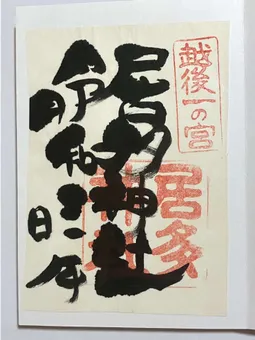 越後一の宮
居多神社
居多神社
令和 年
月 日